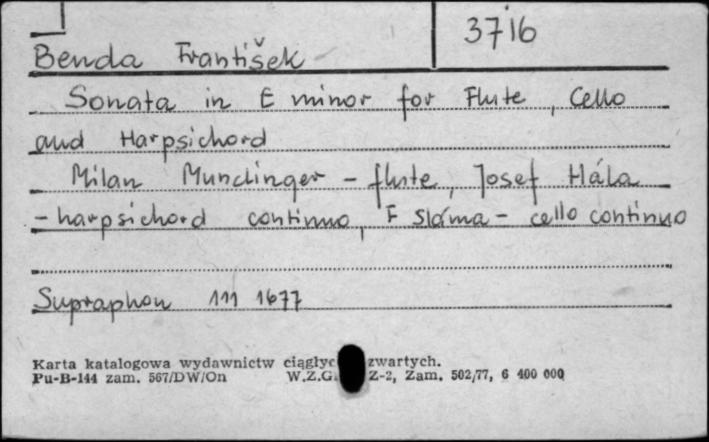 3716
Benda František
Sonata in E minor for Flute, Cello
and Harpsichord
Milan Munclinger - flute, Josef Hála
- harpsichord continuo, F Sláma - cello continuo
Supraphon 111 1677
Karta katalogowa wydawnictw zwartych.
Pu-B-144 zam. 567/DW/On W.Z.G. Z-2, Zam. 502/77, 6 400 000